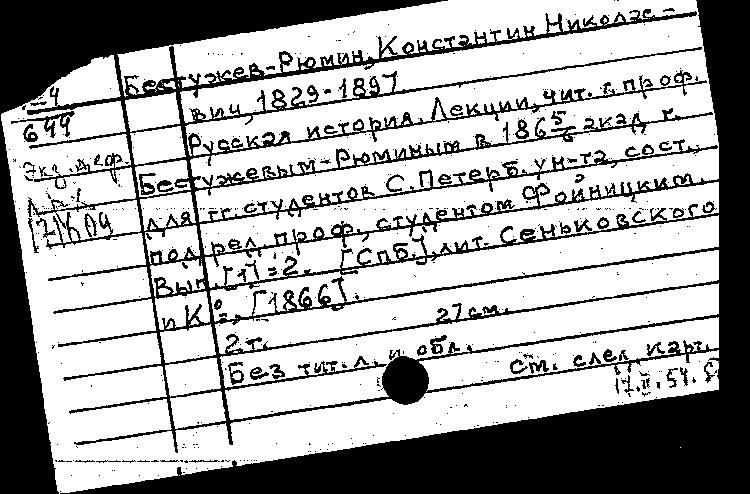 Бестужев-Рюмин, Константин Николае-
вич, 1829-1897
Русская история. Лекции, чит. г. проф.
Бестужевым-Рюминым в 1865/6 акад. г.
для гг. студентов С. Петерб. ун-та, сост.,
под ред. проф., студентом Фойницким.
Вып. [1]-2. [Спб.], лит. Сеньковского
и Кº, [1866].
2 т. 27 см.
Без тит. л. и обл.
см. след. карт.
17.II.54.
-4
644
Экз. деф.